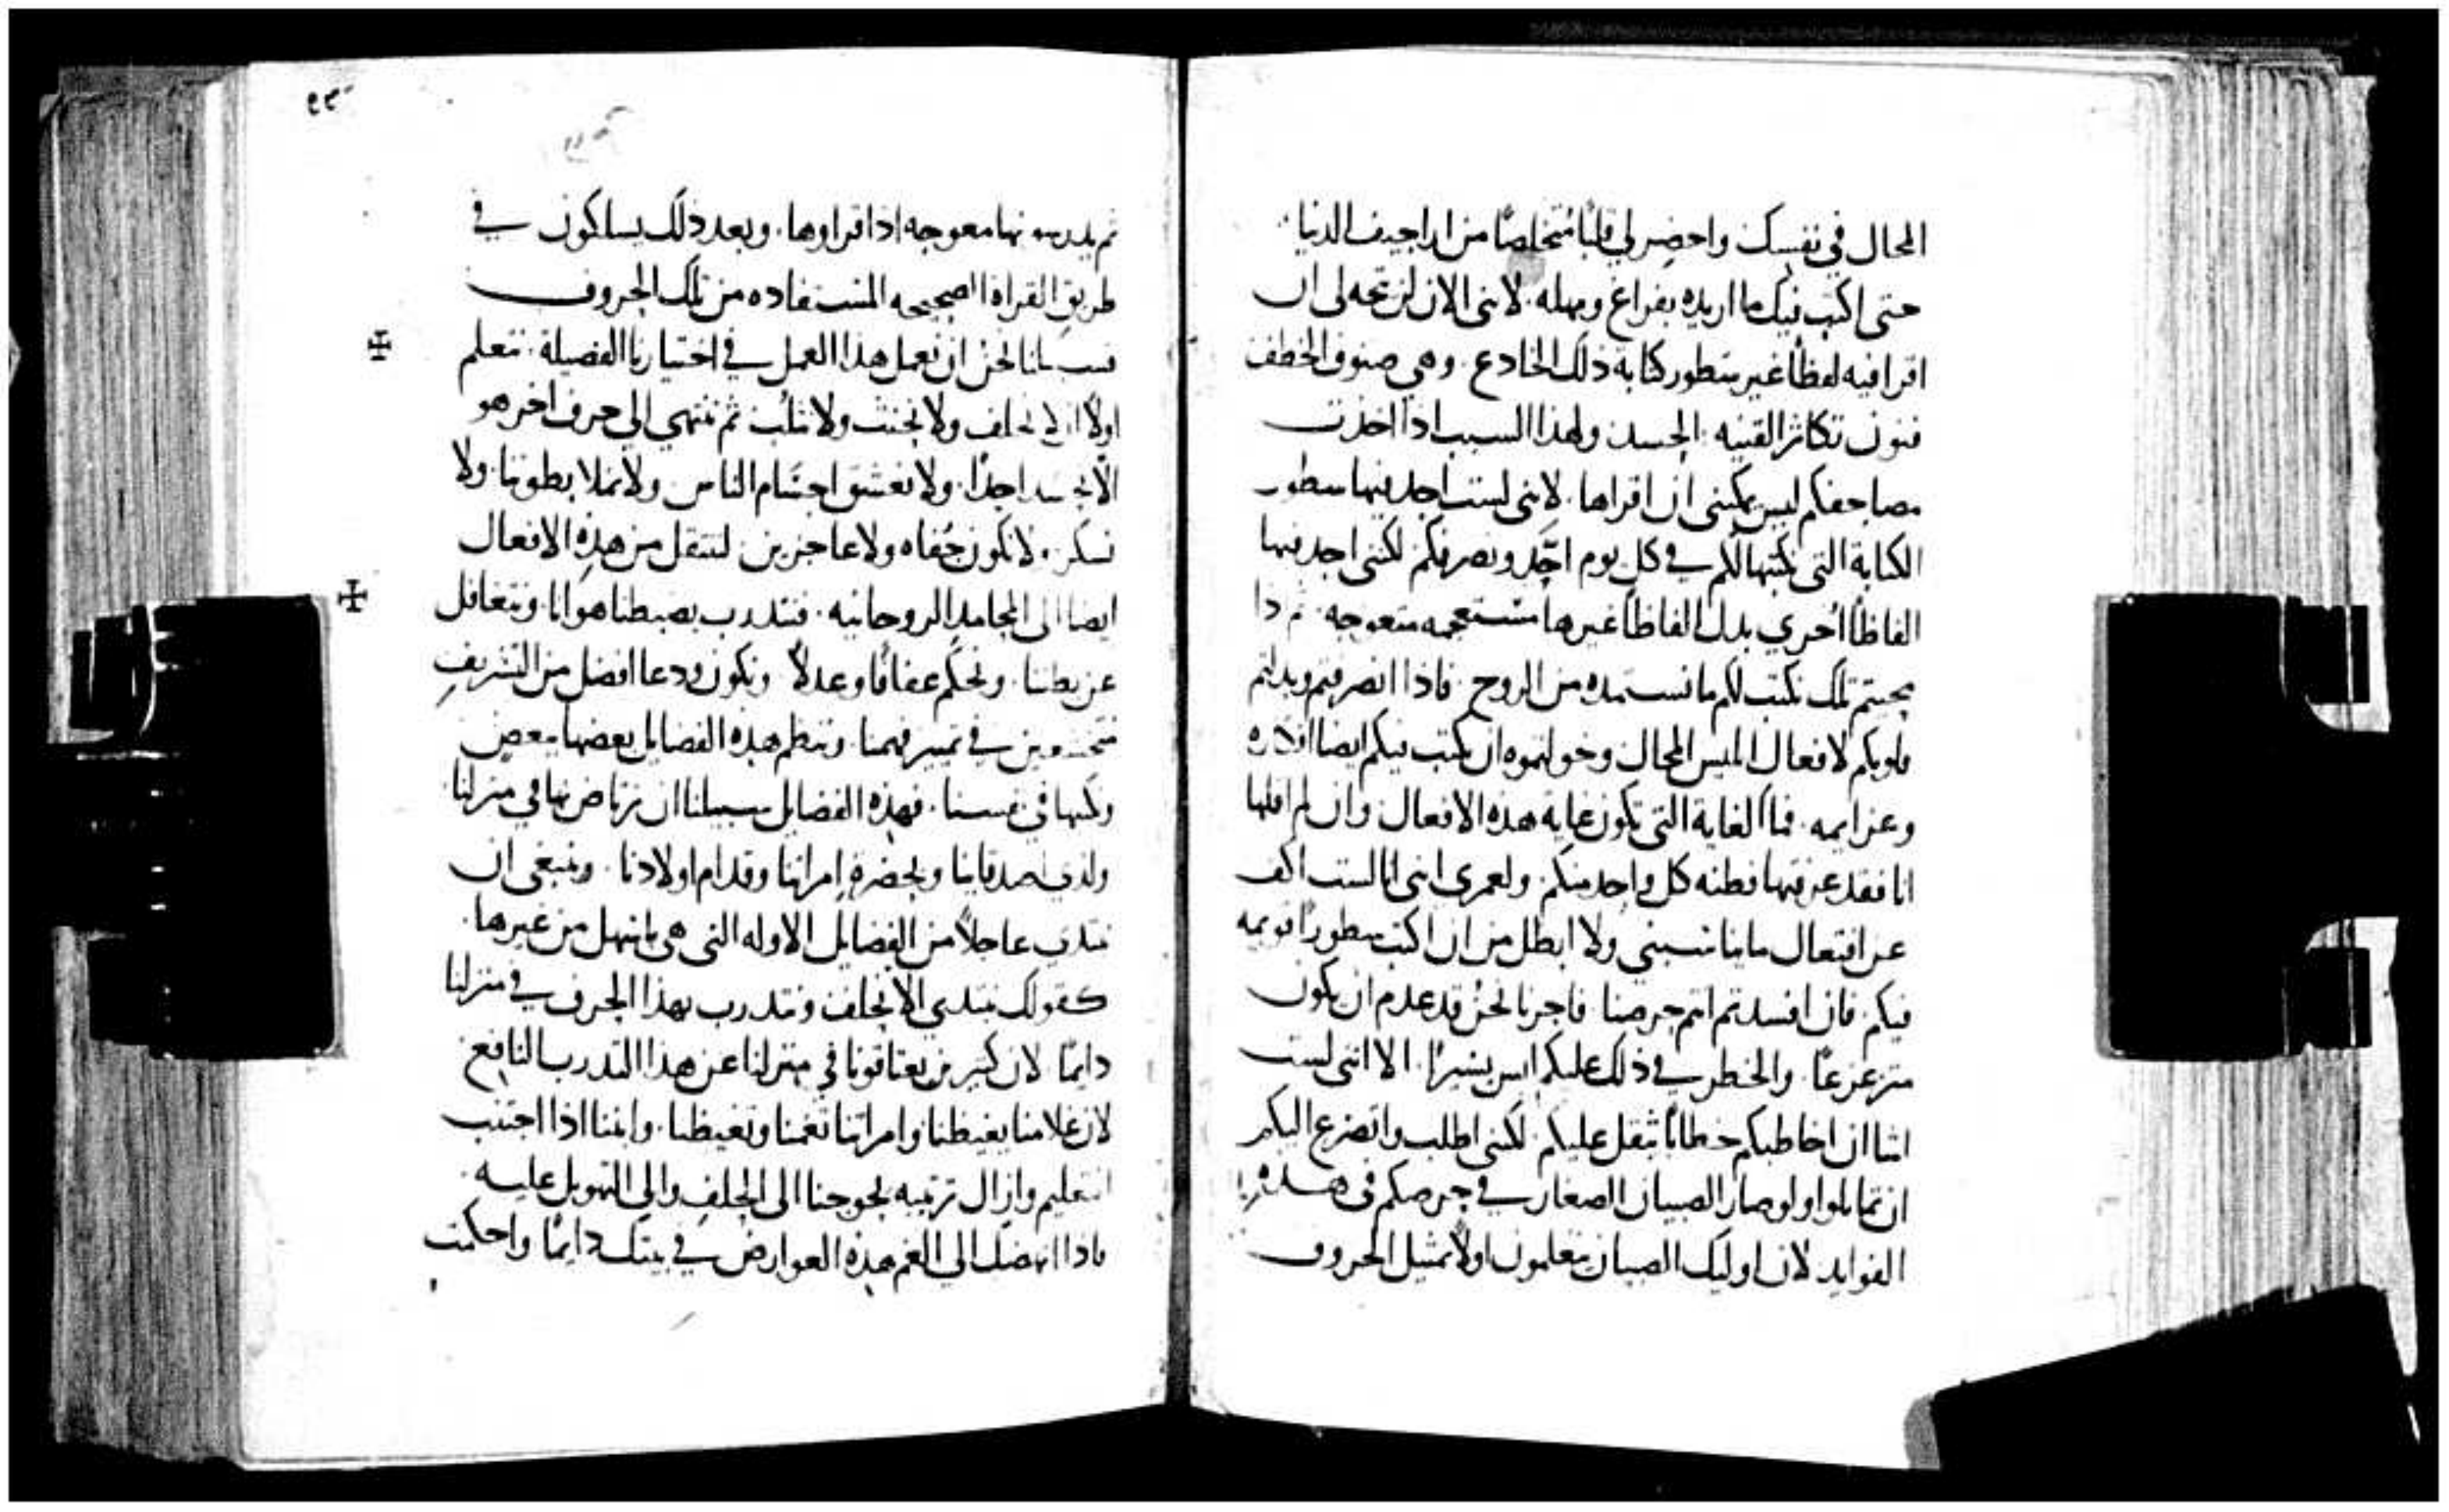 المحال في نفسك واحضر لي قلبًا مُتخلصًا من اراجيف الدنيا
حتى اكتب فيك ما اريده بفراغ ومهله. لاننى الان لن يتجه لى ان
اقرا فيه لفظًا غير سطور كتابة ذلك الخادع. وهي صنوف الخطف
فنون تكاثر القنيه. الحسد. ولهذا السبب اذا اخذت
مصاحفكم ليس يمكننى ان اقراها. لاننى لست اجد فيها سطور
الكتابة التى نكتبها لكم في كل يوم احد ونصرفكم لكننى اجد فيها
الفاظًا اخرى بدل الفاظًا غيرها مستعجمه متعوجه
تلك نكتب لكم ما نستمده من الروح. فاذا انصرفتم وبدلتم
قلوبكم لافعال ابليس المحال وخولتموه ان يكتب فيكم ايضا افكاره
وعزايمه. فما الغاية التى تكون غاية هذه الافعال وان لم اقلها
انا فقد عرفتها فطنه كل واحد منكم. ولعمرى اننى انا لست اكف
عن افتعال ما يناسبني ولا ابطل من ان اكتب سطورًا قويمه
فيكم. فان افسدتم انتم حرصنا. فاجرنا نحن قد عدم ان يكون
متزعزعًا. والخطر في ذلك عليكم ليس يسيرًا. الا اننى لست
اشا ان اخاطبكم خطابًا يثقل عليكم. لكننى اطلب واتضرع اليكم
ان تماثلوا ولو صار الصبيان الصغار في حرصكم فى هذه
الفوايد لان اوليك الصبيان يتعلمون اولًا تمثيل الحروف
٩٣
ثم معوجه اذا قراوها. وبعد ذلك يسلكون في
طريق القراة الصحيحه المستفاده من تلك الحروف
نحن ان نعمل هذا العمل في اختيارنا الفضيلة. نتعلم
اولًا ان لا نحلف ولا نحنث ولا نثلب ثم ننتهي الى حرف اخر هو
الا نحسد احدًا. ولا نعشق اجسام الناس. ولا نملا بطوننا. ولا
نسكر. ولا نكون جُفاه ولا عاجزين. لننتقل من هذه الافعال
ايضا الى المحامد الروحانيه. فنتدرب بضبطنا هوانا. ونتغافل
عن بطننا. ونحكم عفافًا وعدلًا ونكون ودعا افضل من الشريف
متخشعين في تمييز فهمنا. وننظم هذه الفضايل بعضها ببعض
ونكتبها في نفسنا. فهذه الفضايل سبيلنا ان نرتاض بها في منزلنا
ولدى اصدقاينا وبحضرة امراتنا وقدام اولادنا. وينبغى ان
نبتدى عاجلًا من الفضايل الاوله التى هى اسهل من غيرها.
كقولك نبتدى الا نحلف ونتدرب بهذا الحرف في منزلنا
دايمًا. لان كثيرين يعتاقونا في منزلنا عن هذا التدرب النافع
لان غلامنا يغيظنا وامراتنا تغمنا وتغيظنا. وابننا اذا اجتنب
التعليم وازال ترتيبه يحوجنا الى الحلف والى التهويل عليه
فاذا انهضك الى الغم هذه العوارض في بيتك دايمًا واحكمت